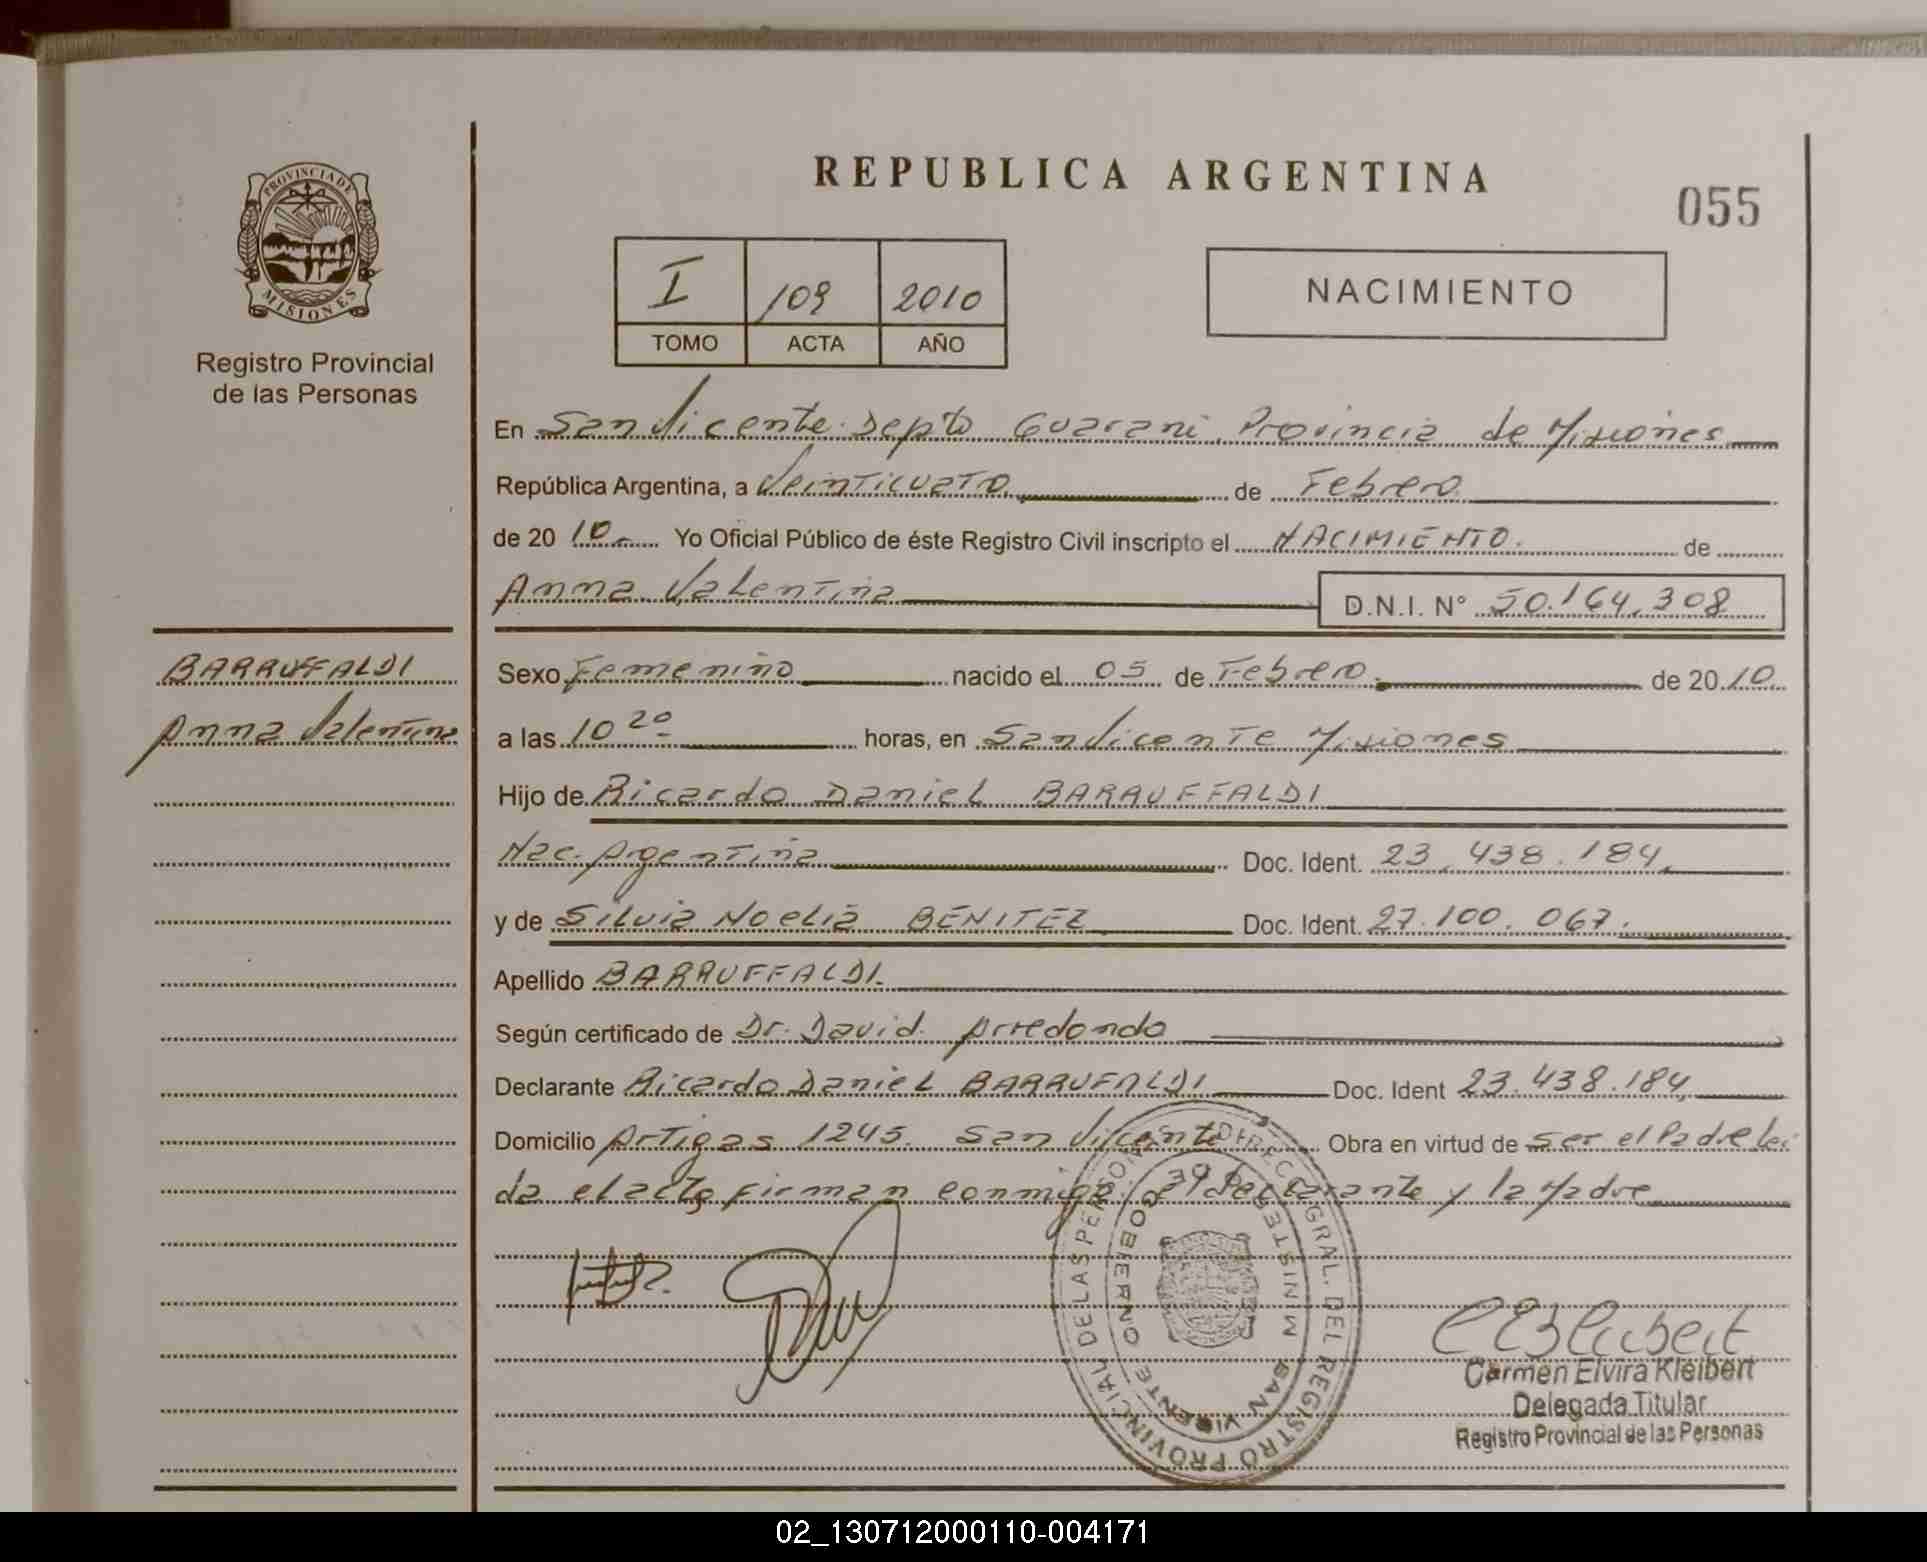 REPUBLICA ARGENTINA
055
PROVINCIA DE
MISIONES
Registro Provincial
de las Personas
I 109 2010
TOMO ACTA AÑO
NACIMIENTO
En San Vicente Depto Guarani Provincia de Misiones
República Argentina, a Veinticuatro de Febrero
de 20 10 Yo Oficial Público de éste Registro Civil inscripto el NACIMIENTO. de
Anna Valentina D.N.I. N° 50.164.308
BARRUFFALDI
Anna Valentina
Sexo Femenino nacido el 05 de Febrero de 20 10
a las 10 20 horas, en San Vicente Misiones
Hijo de Ricardo Daniel BARRUFFALDI
Nac. Argentina Doc. Ident. 23.438.184
y de Silvia Noelia BENITEZ Doc. Ident. 27.100.067.
Apellido BARRUFFALDI
Según certificado de Dr. David Arredondo
Declarante Ricardo Daniel BARRUFALDI Doc. Ident 23.438.184
Domicilio Artigas 1245. San Vicente Obra en virtud de ser el Padre Lei
da el acta firman conmigo el Declarante y la Madre
DIREC. GRAL. DEL REGISTRO PROVINCIAL DE LAS PERSONAS
MINISTER GOBIERNO
SAN VICENTE
Carmen Elvira Kleibert
Delegada Titular
Registro Provincial de las Personas
02_130712000110-004171